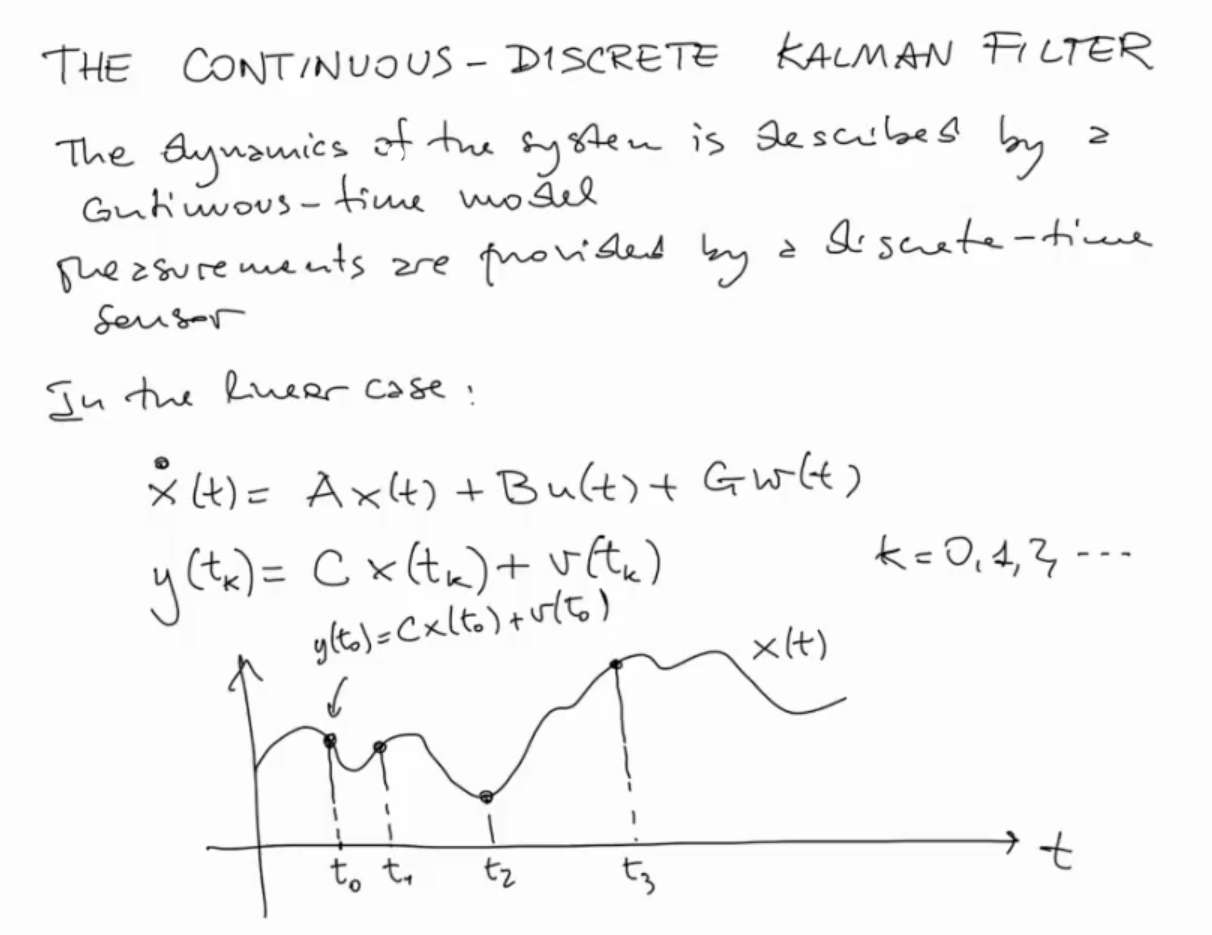 THE CONTINUOUS-DISCRETE KALMAN FILTER
The dynamics of the system is described by a
continuous-time model
Measurements are provided by a discrete-time
sensor
In the linear case:
ẋ(t) = Ax(t) + Bu(t) + Gw(t)
y(tₖ) = Cx(tₖ) + v(tₖ)    k = 0, 1, 2, ---
y(t₀) = Cx(t₀) + v(t₀)
x(t)
t₀ t₁ t₂ t₃ t